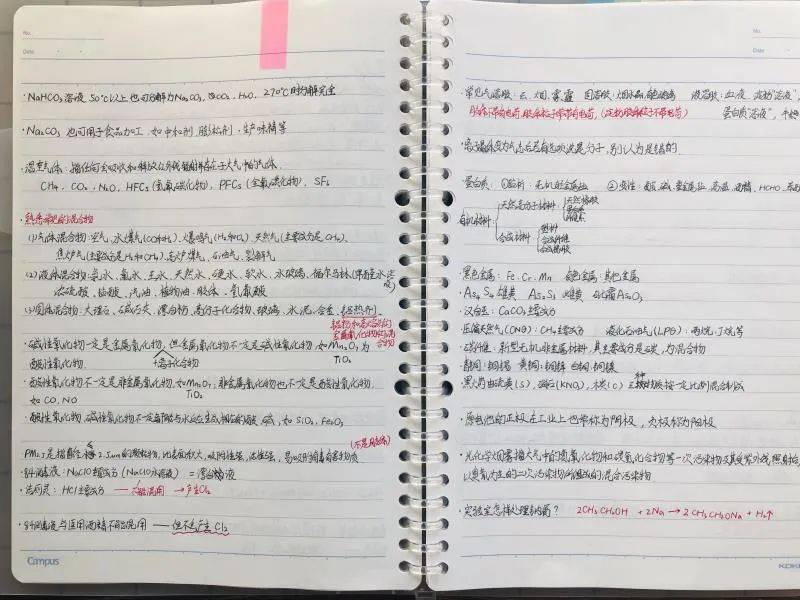 No.
Date
·NaHCO₃溶液 50℃以上也可分解为Na₂CO₃, CO₂, H₂O. 270℃时分解完全
·Na₂CO₃ 也可用于食品加工, 如中和剂 膨松剂. 生味精等
·温室气体: 指任何会吸收和释放红外线辐射并存在于大气中的气体.
CH₄. CO₂. N₂O. HFCs(氢氟碳化物), PFCs(全氟碳化物), SF₆
·熟悉常见的混合物
(1)气体混合物: 空气, 水煤气(CO和H₂). 爆鸣气(H₂和O₂). 天然气(主要成分是CH₄).
焦炉气(主要成分是H₂和CH₄), 高炉煤气. 石油气, 裂解气
(2)液体混合物: 氨水, 氯水, 王水, 天然水, 硬水, 软水, 水玻璃, 福尔马林(甲醛水溶液)
浓硫酸, 盐酸, 汽油, 植物油, 胶体, 氢氟酸
(3)固体混合物: 大理石, 碱石灰, 漂白粉, 高分子化合物, 玻璃, 水泥, 合金, 铝热剂.
铝粉和高熔点的金属氧化物的混合物
·碱性氧化物一定是金属氧化物, 但金属氧化物不一定是碱性氧化物, 如Mn₂O₇为
酸性氧化物.
离子化合物
TiO₂
·酸性氧化物不一定是非金属氧化物, 如Mn₂O₇; 非金属氧化物也不一定是酸性氧化物,
如CO, NO
TiO₂
·酸性氧化物, 碱性氧化物不一定都能与水反应生成相应的酸, 碱, 如SiO₂, Fe₂O₃
(不是胶体)
PM₂.₅是指直径≤2.5um的颗粒物, 比表面积大, 吸附性强, 活性强, 易吸附病毒有害物质
·84消毒液: NaClO主要成分 (NaClO水溶液) = 漂白液
·洁厕灵: HCl主要成分 —— 不能混用 → 产生Cl₂
·84消毒液与医用酒精不能混用 —— 但不产生Cl₂
Campus
No.
Date
常见气溶胶: 云. 烟. 雾. 霾 固溶胶: 烟水晶, 有色玻璃 液溶胶: 血液
胶体不带电荷, 胶体粒子常带电荷, (淀粉胶体粒子不带电荷)
蛋白质"溶液",
蛋白质: ①盐析: 无机轻金属盐 ②变性: 酸, 碱, 重金属盐, 高温, 酒精, HCHO,
有机材料:
天然高分子材料
天然橡胶
合成材料
塑料
合成纤维
合成橡胶
·黑色金属: Fe. Cr. Mn 有色金属: 其他金属
·As₄S₄ 雄黄 As₂S₃ 雌黄 砒霜As₂O₃
·汉白玉: CaCO₃主要成分
·压缩天然气(CNG): CH₄主要成分 液化石油气(LPG): 丙烷, 丁烷等
·碳纤维: 新型无机非金属材料, 其主要成分是碳, 为混合物
·青铜: 铜锡 黄铜: 铜锌 白铜: 铜镍
·黑火药由硫黄(S), 硝石(KNO₃), 木炭(C)三种物质按一定比例混合制成
·原电池的正极在工业上也常称为阴极, 负极称为阳极
·光化学烟雾指大气中的氮氧化物和碳氢化合物等一次污染物及其受紫外线照射后
以臭氧为主的二次污染物所组成的混合污染物
·实验室怎样处理钠屑? 2CH₃CH₂OH + 2Na → 2CH₃CH₂ONa + H₂↑